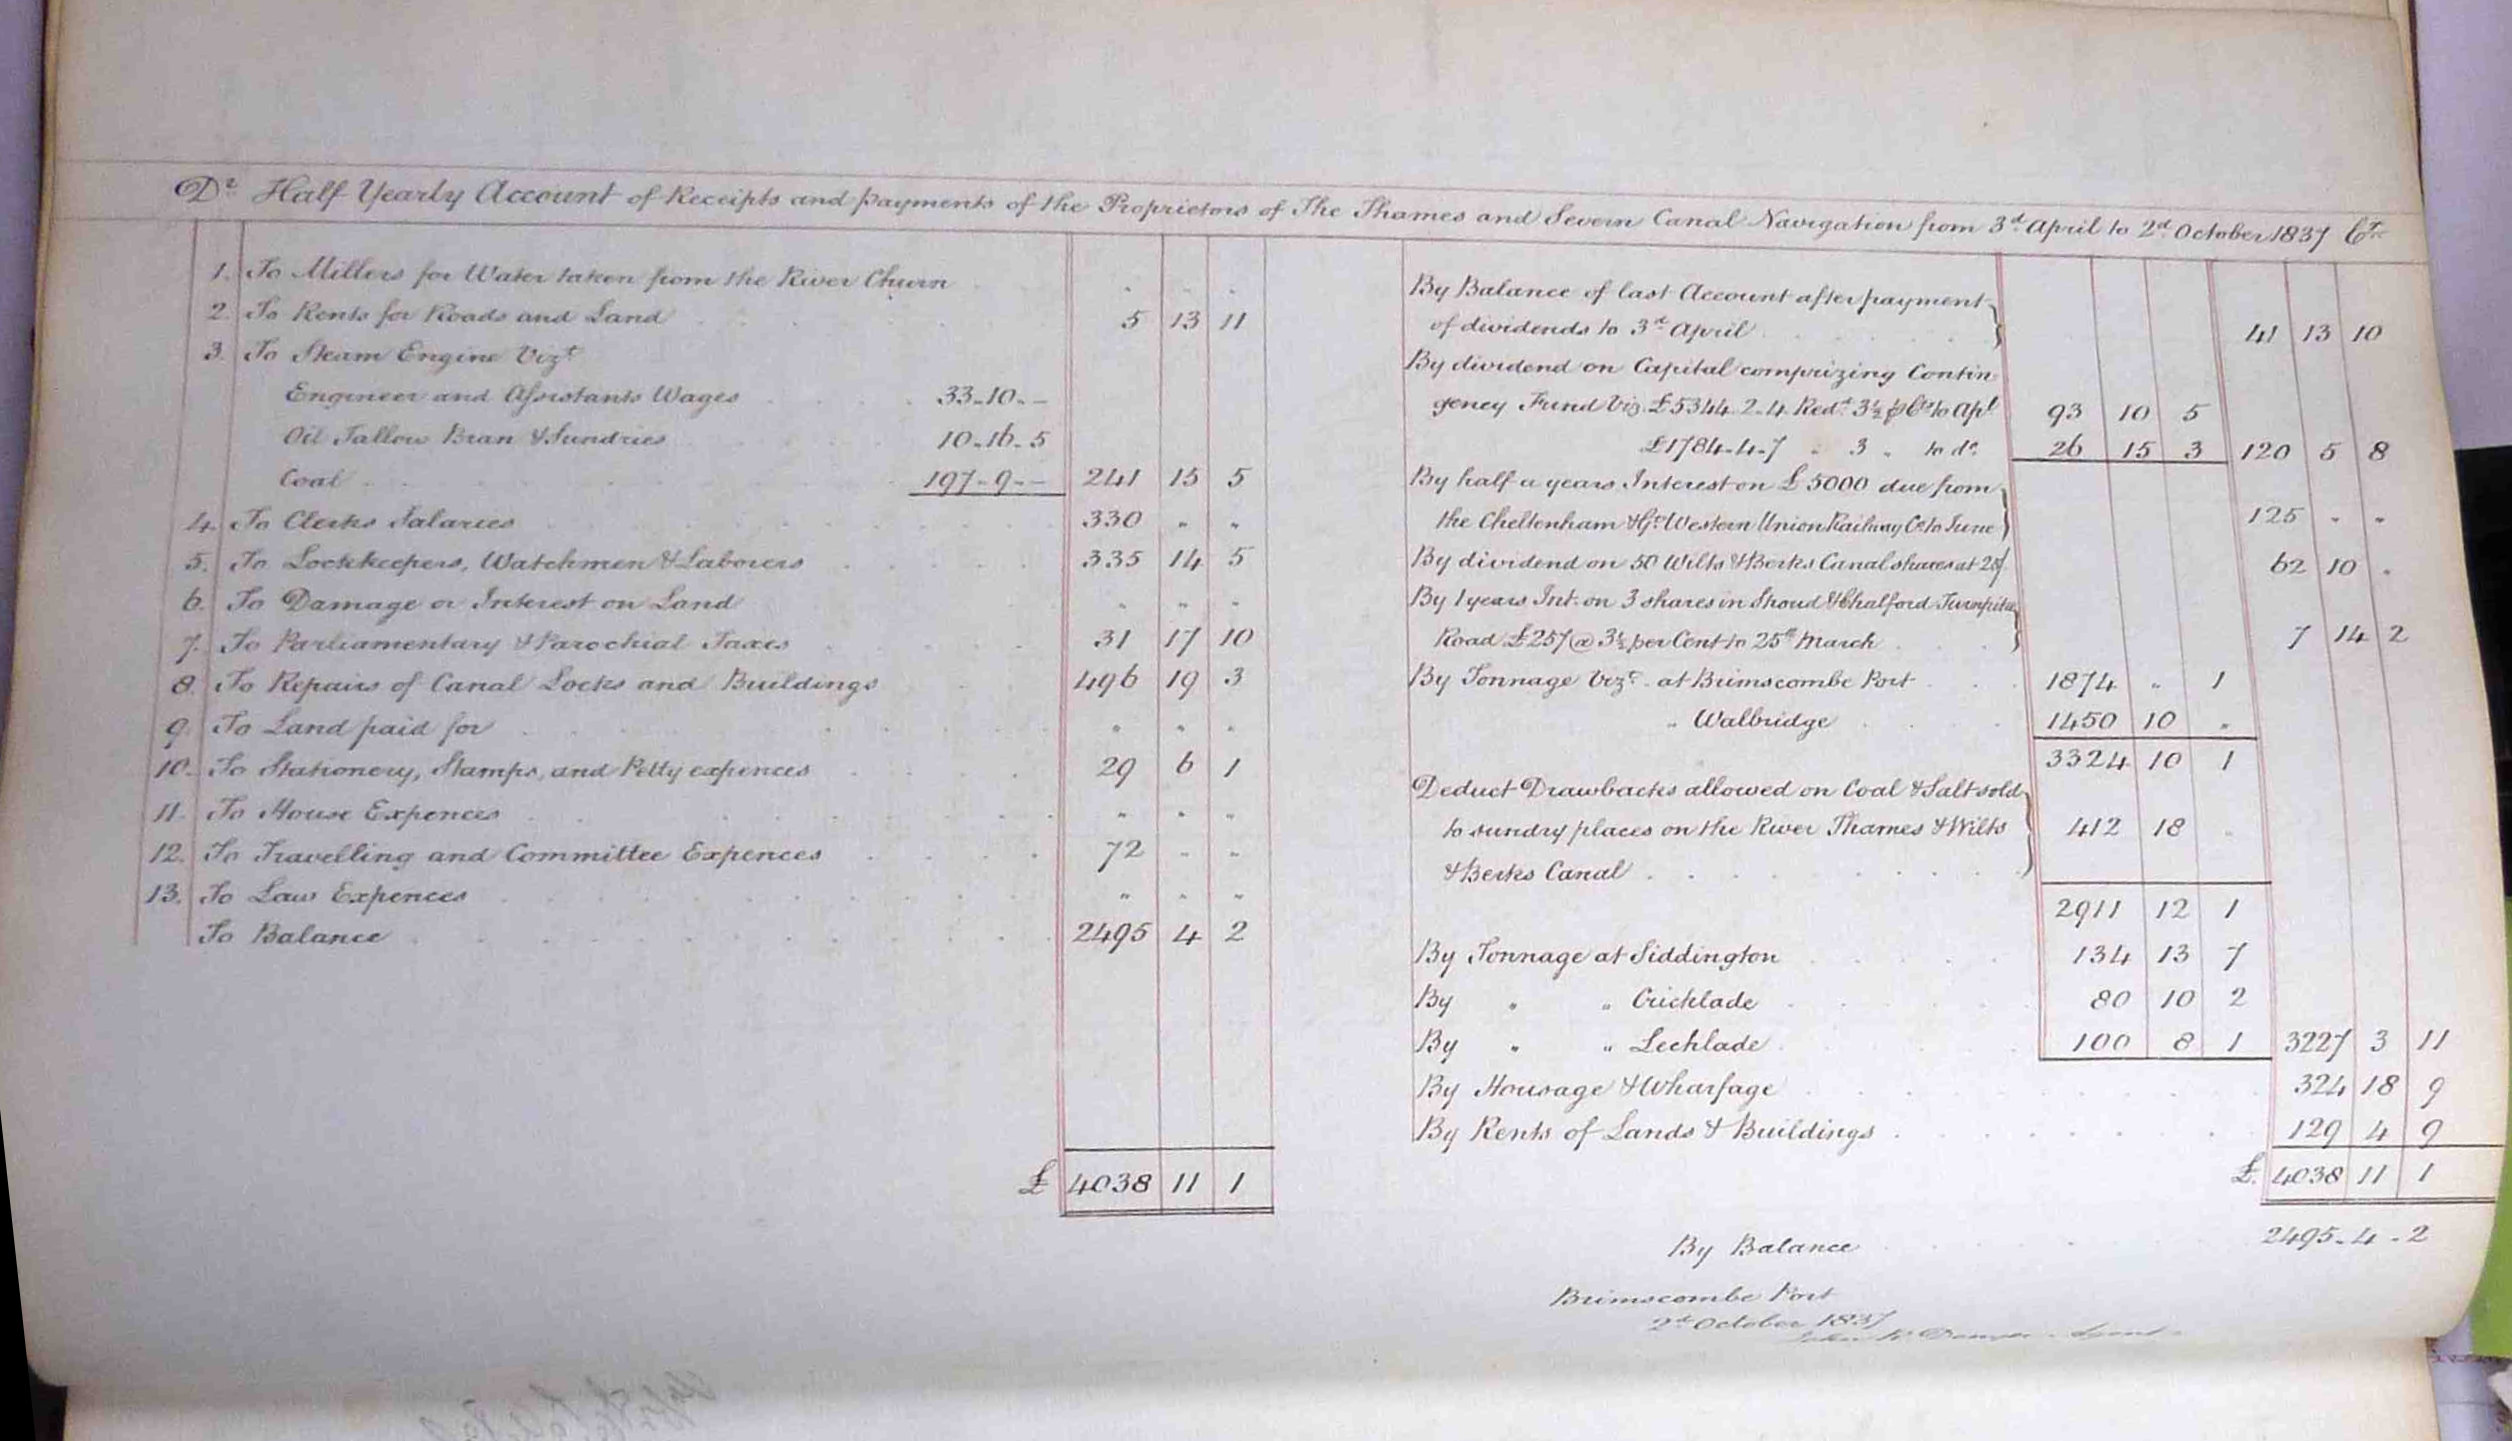 Dr. Half Yearly Account of Receipts and Payments of the Proprietors of The Thames and Severn Canal Navigation from 3d. April to 2d. October 1837 Cr.
1. To Millers for Water taken from the River Churn " " "
2. To Rents for Roads and Land 5 13 11
3. To Steam Engine Vizt
Engineer and Assistants Wages 33-10--
Oil Tallow Bran & Sundries 10-16-5
Coal 197-9-- 241 15 5
4. To Clerks Salaries 330 " "
5. To Lockkeepers, Watchmen & Laborers 335 14 5
6. To Damage or Interest on Land " " "
7. To Parliamentary & Parochial Taxes 31 17 10
8. To Repairs of Canal Locks and Buildings 496 19 3
9. To Land paid for " " "
10. To Stationery, Stamps, and Petty expences 29 6 1
11. To House Expences " " "
12. To Travelling and Committee Expences 72 " "
13. To Law Expences " " "
To Balance 2495 4 2
£ 4038 11 1
By Balance of last Account after payment
of dividends to 3d. April 41 13 10
By dividend on Capital comprizing Contin
gency Fund Viz. £5344-2-4 Redd. 3½ p Ct. to Apl. 93 10 5
£1784-4-7 " 3 " to do. 26 15 3 120 5 8
By half a years Interest on £5000 due from
the Cheltenham & Gt. Western Union Railway Co. to June 125 " "
By dividend on 50 Wilts & Berks Canal shares at 25/ 62 10 "
By 1 years Int. on 3 shares in Stroud & Chalford Turnpike
Road £257 @ 3½ per Cent to 25th March 7 14 2
By Tonnage Vizt. at Brimscombe Port 1874 " 1
" Walbridge 1450 10 "
3324 10 1
Deduct Drawbacks allowed on Coal & Salt sold
to sundry places on the River Thames & Wilts 412 18 "
& Berks Canal
2911 12 1
By Tonnage at Siddington 134 13 7
By " " Cricklade 80 10 2
By " " Lechlade 100 8 1 3227 3 11
By Housage & Wharfage 324 18 9
By Rents of Lands & Buildings 129 4 9
£ 4038 11 1
By Balance 2495-4-2
Brimscombe Port
2d. October 1837
John